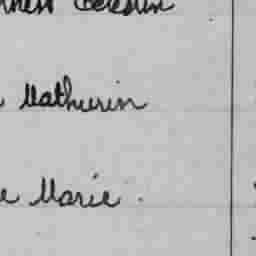 Celestin
Mathurin
e Marie